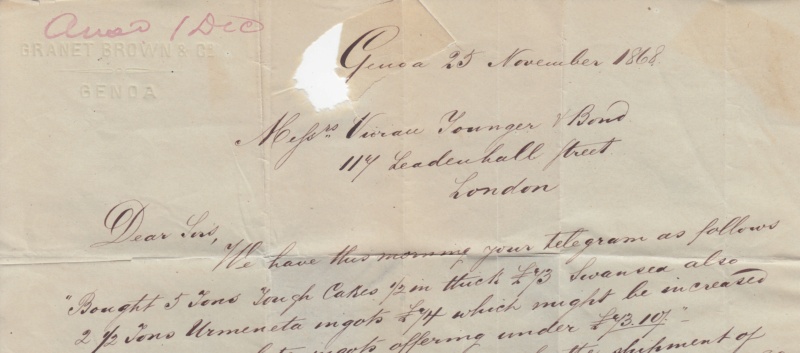 Answd 1 Dec
GRANET BROWN & Co
GENOA
Genoa 25 November 1868
Messrs Vivian Younger & Bond
117 Leadenhall Street
London
Dear Sirs,
We have this morning your telegram as follows
"Bought 5 Tons Tough Cakes 1/2 in thick £73 Swansea also
2 1/2 Tons Urmeneta ingots £74 which might be increased
ingots offering under £73.10/."
the shipment of